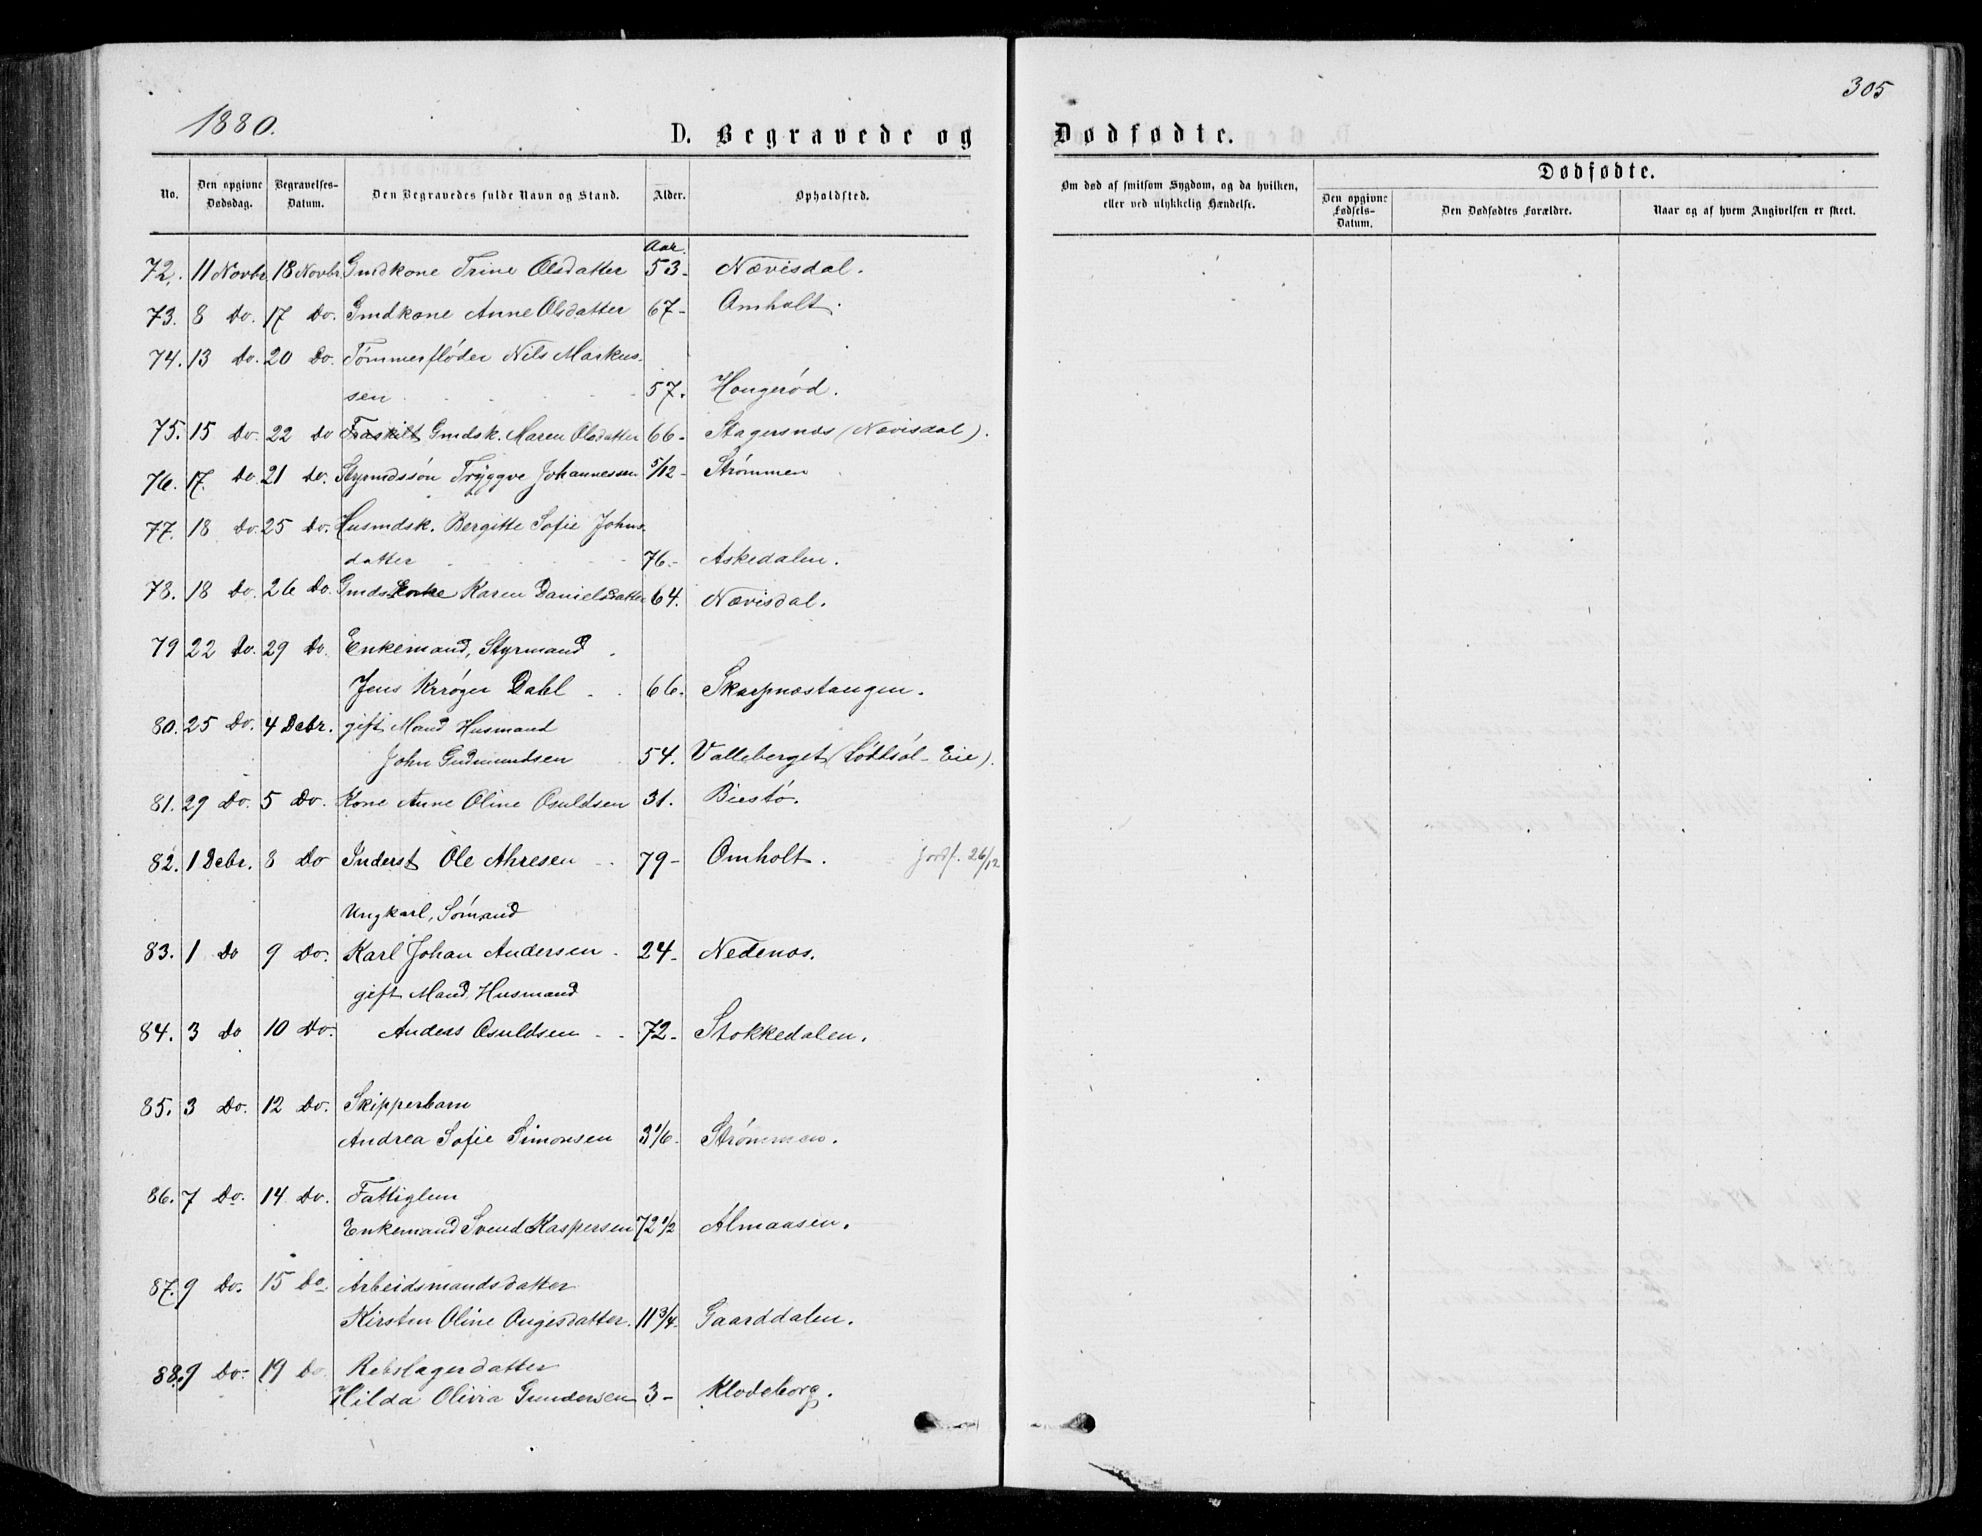 305
1880.
D. Begravede og Dødfødte.
No.
Den opgivne Dødsdag.
Begravelses-Datum.
Den Begravedes fulde Navn og Stand.
Alder.
Opholdsted.
Om død af smitsom Sygdom, og da hvilken, eller ved ulykkelig Hændelse.
Dødfødte.
Den opgivne Fødsels-Datum.
Den Dødfødtes Forældre.
Naar og af hvem Angivelsen er skeet.
Aar
72. 11 Novbr 18 Novbr. Gmdkone Trine Olsdatter 53- Nævisdal.
73. 8 Do. 17 Do. Gmdkone Anne Olsdatter 67- Omholt.
74. 13 Do. 20 Do. Tømmerfløder Nils Markus-
sen 57. Hougerød.
75. 15 Do. 22 Do Fraskilt Gmdsk. Maren Olsdatter 66- Stagersnæs (Nævisdal).
76. 17. Do 21 Do. Styrmdssøn Tryggve Johannessen 5/12- Strømmen
77. 18 Do. 25 Do. Husmdsk. Bergitte Sofie Johns-
datter 76- Askedalen.
78. 18 Do. 26 Do. Gmds Enke Karen Danielsdatter 64. Nævisdal.
79 22 Do. 29 Do. Enkemand, Styrmand
Jens Krøger Dahl 66. Skarpnæstangen.
80. 25 Do. 4 Debr. gift Mand Husmand
John Gudmundsen 54. Valleberget (Løddsøl-Eie).
81. 29 Do. 5 Do. Kone Anne Oline Osuldsen 31. Biestø.
82. 1 Debr. 8 Do Inderst Ole Ahresen 79- Omholt. Jordf. 26/12
Ungkarl, Sømand
83. 1 Do 9 Do. Karl Johan Andersen 24- Nedenæs.
gift Mand, Husmand
84. 3 Do 10 Do. Anders Osuldsen 72- Stokkedalen.
85. 3 Do. 12 Do. Skipperbarn
Andrea Sofie Simonsen 3 1/6. Strømmen.
86. 7 Do. 14 Do. Fattiglem
Enkemand Svend Kaspersen 72 1/2 Almaasen.
87. 9 Do. 15 Do Arbeidsmandsdatter
Kirsten Oline Augesdatter. 11 3/4. Gaarddalen.
88. 9 Do- 19 Do Rebslagerdatter
Hilda Olivia Gundersen 3- Klodeborg.